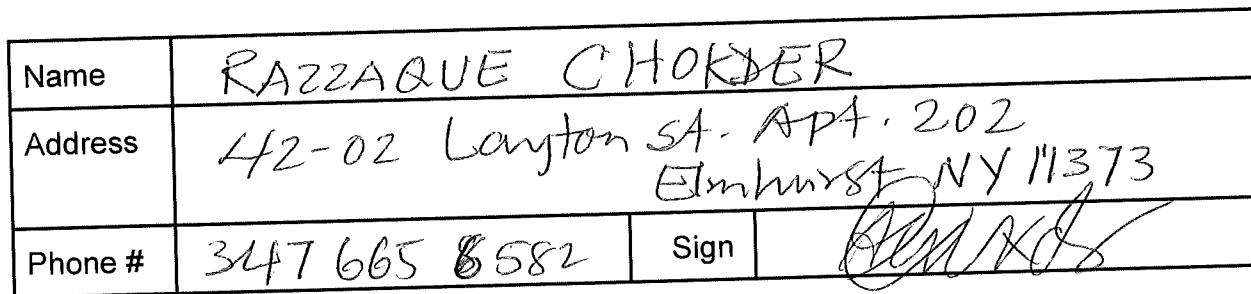 Name RAZZAQUE CHOKDER
Address 42-02 Layton St. Apt. 202
Elmhurst NY 11373
Phone # 347 665 8582 Sign